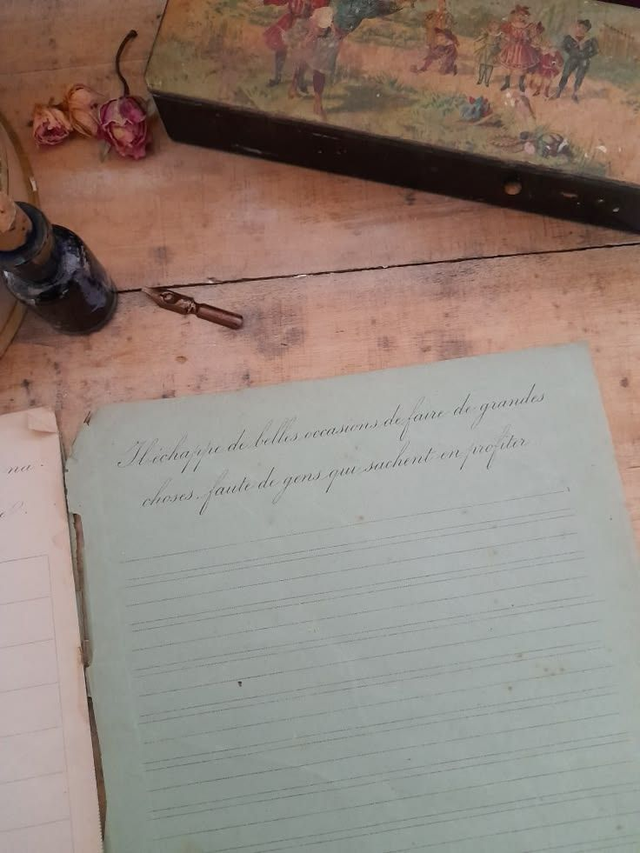 Il échappe de belles occasions de faire de grandes
choses, faute de gens qui sachent en profiter
nu